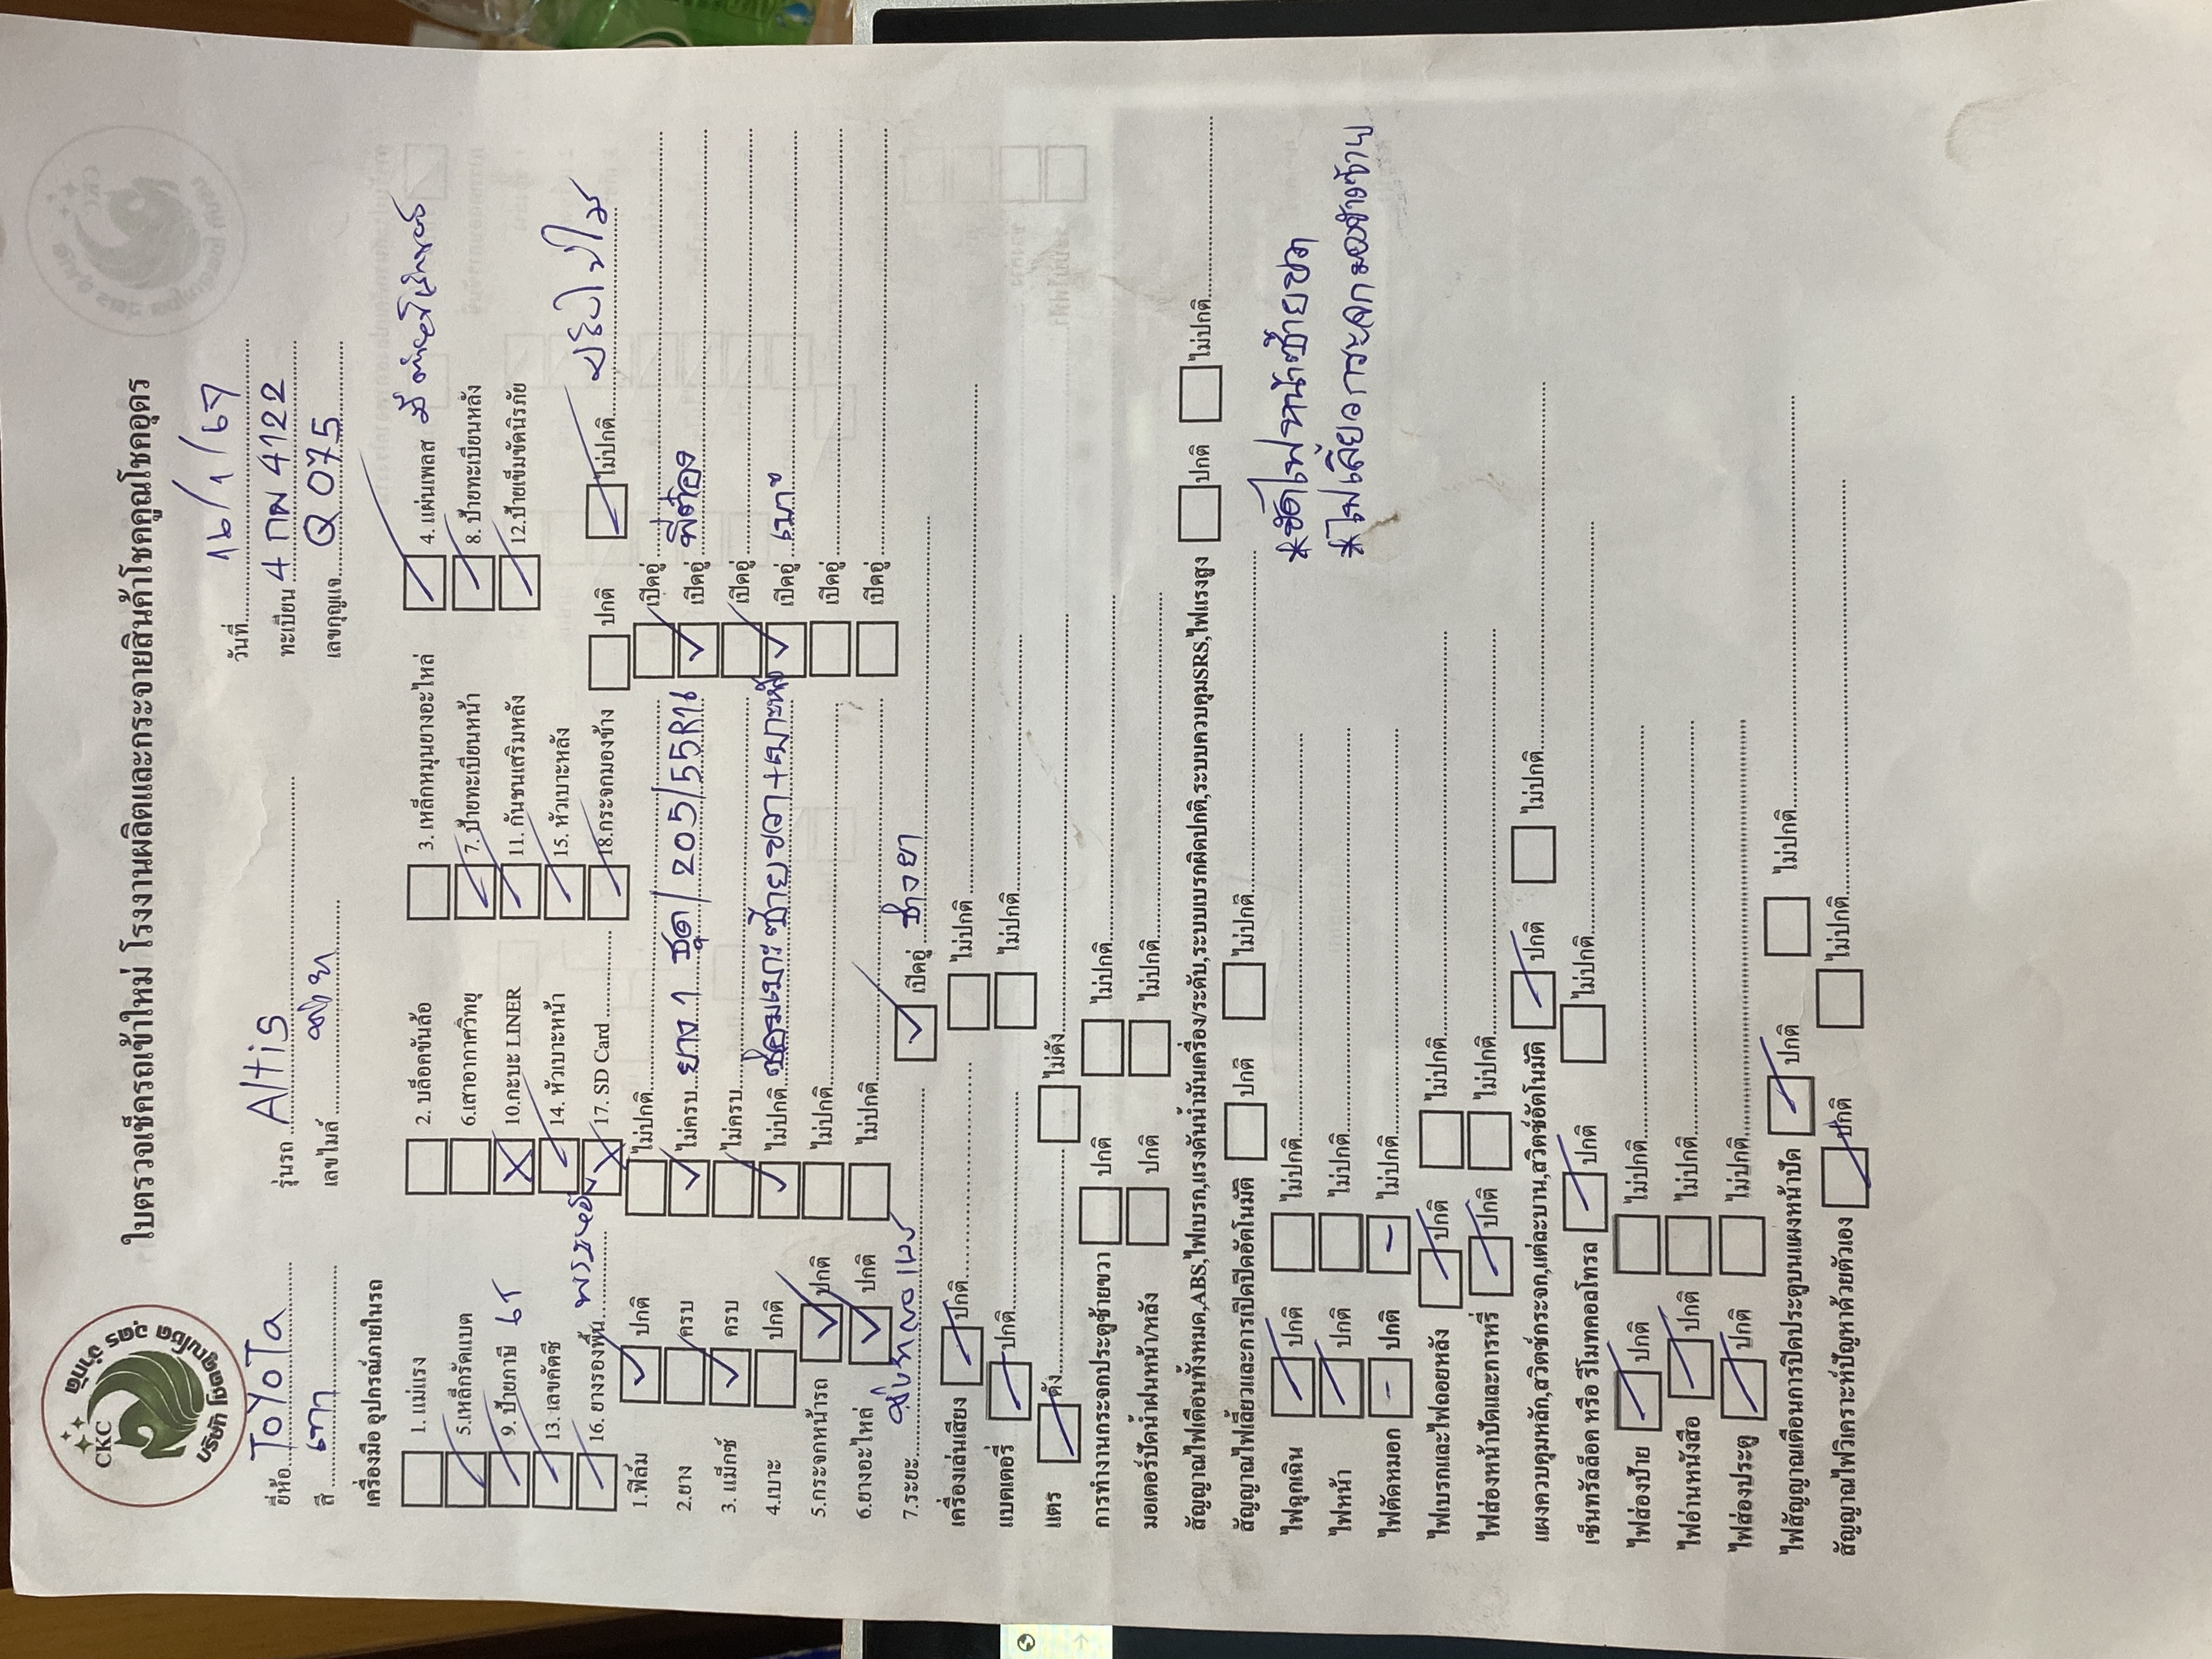 CKC
บริษัท โชคคูณโชค อุดร จำกัด
ใบตรวจเช็ครถเข้าใหม่ โรงงานผลิตและกระจายสินค้าโชคคูณโชคอุดร
วันที่ 16/1/67
ยี่ห้อ ToYoTa รุ่นรถ Altis ทะเบียน 4 กผ 4122
สี เทา เลขไมล์ เลขกุญแจ Q 075
เครื่องมือ อุปกรณ์ภายในรถ
1. แม่แรง 2. บล็อคขันล้อ 3. เหล็กหมุนยางอะไหล่ 4. แผ่นเพลส
5.เหล็กรัดแบต 6.เสาอากาศวิทยุ 7. ป้ายทะเบียนหน้า 8. ป้ายทะเบียนหลัง
9. ป้ายภาษี 10.กะบะ LINER 11. กันชนเสริมหลัง 12.ป้ายเข็มขัดนิรภัย
13. เลขคัดซี 14. หัวเบาะหน้า 15. หัวเบาะหลัง
16. ยางรองพื้น 17. SD Card 18.กระจกมองข้าง ปกติ ไม่ปกติ
1.ฟิล์ม ปกติ ไม่ปกติ เปิดอยู่
2.ยาง ครบ ไม่ครบ ยาง 1 ชุด/205/55R16 เปิดอยู่ พี่ต๋อง
3. แม็กซ์ ครบ ไม่ครบ เปิดอยู่
4.เบาะ ปกติ ไม่ปกติ ซ่อมเบาะซ้ายขวา+เบาะหลัง เปิดอยู่ เบาะ
5.กระจกหน้ารถ ปกติ ไม่ปกติ เปิดอยู่
6.ยางอะไหล่ ปกติ ไม่ปกติ เปิดอยู่
7.ระยะ เปิดอยู่ ช่างยา
เครื่องเล่นเสียง ปกติ ไม่ปกติ
แบตเตอรี่ ปกติ ไม่ปกติ
แตร ดัง ไม่ดัง
การทำงานกระจกประตูซ้ายขวา ปกติ ไม่ปกติ
มอเตอร์ปัดน้ำฝนหน้า/หลัง ปกติ ไม่ปกติ
สัญญาณไฟเตือนทั้งหมด,ABS,ไฟเบรก,แรงดันน้ำมันเครื่อง/ระดับ,ระบบเบรกผิดปกติ,ระบบควบคุมSRS,ไฟแรงสูง ปกติ ไม่ปกติ
สัญญาณไฟเลี้ยวและการเปิดปิดอัตโนมัติ ปกติ ไม่ปกติ
ไฟฉุกเฉิน ปกติ ไม่ปกติ *ขัดไฟหน้าซ้ายขวา
ไฟหน้า ปกติ ไม่ปกติ *ไฟเลี้ยวกระจกมองข้างซ้าย
ไฟตัดหมอก ปกติ ไม่ปกติ
ไฟเบรกและไฟถอยหลัง ปกติ ไม่ปกติ
ไฟส่องหน้าปัดและการหรี่ ปกติ ไม่ปกติ
แผงควบคุมหลัก,สวิตช์กระจก,แต่ละบาน,สวิตช์อัตโนมัติ ปกติ ไม่ปกติ
เซ็นทรัลล็อค หรือ รีโมทคอลโทรล ปกติ ไม่ปกติ
ไฟส่องป้าย ปกติ ไม่ปกติ
ไฟอ่านหนังสือ ปกติ ไม่ปกติ
ไฟส่องประตู ปกติ ไม่ปกติ
ไฟสัญญาณเตือนการปิดประตูบนแผงหน้าปัด ปกติ ไม่ปกติ
สัญญาณไฟวิเคราะห์ปัญหาด้วยตัวเอง ปกติ ไม่ปกติ